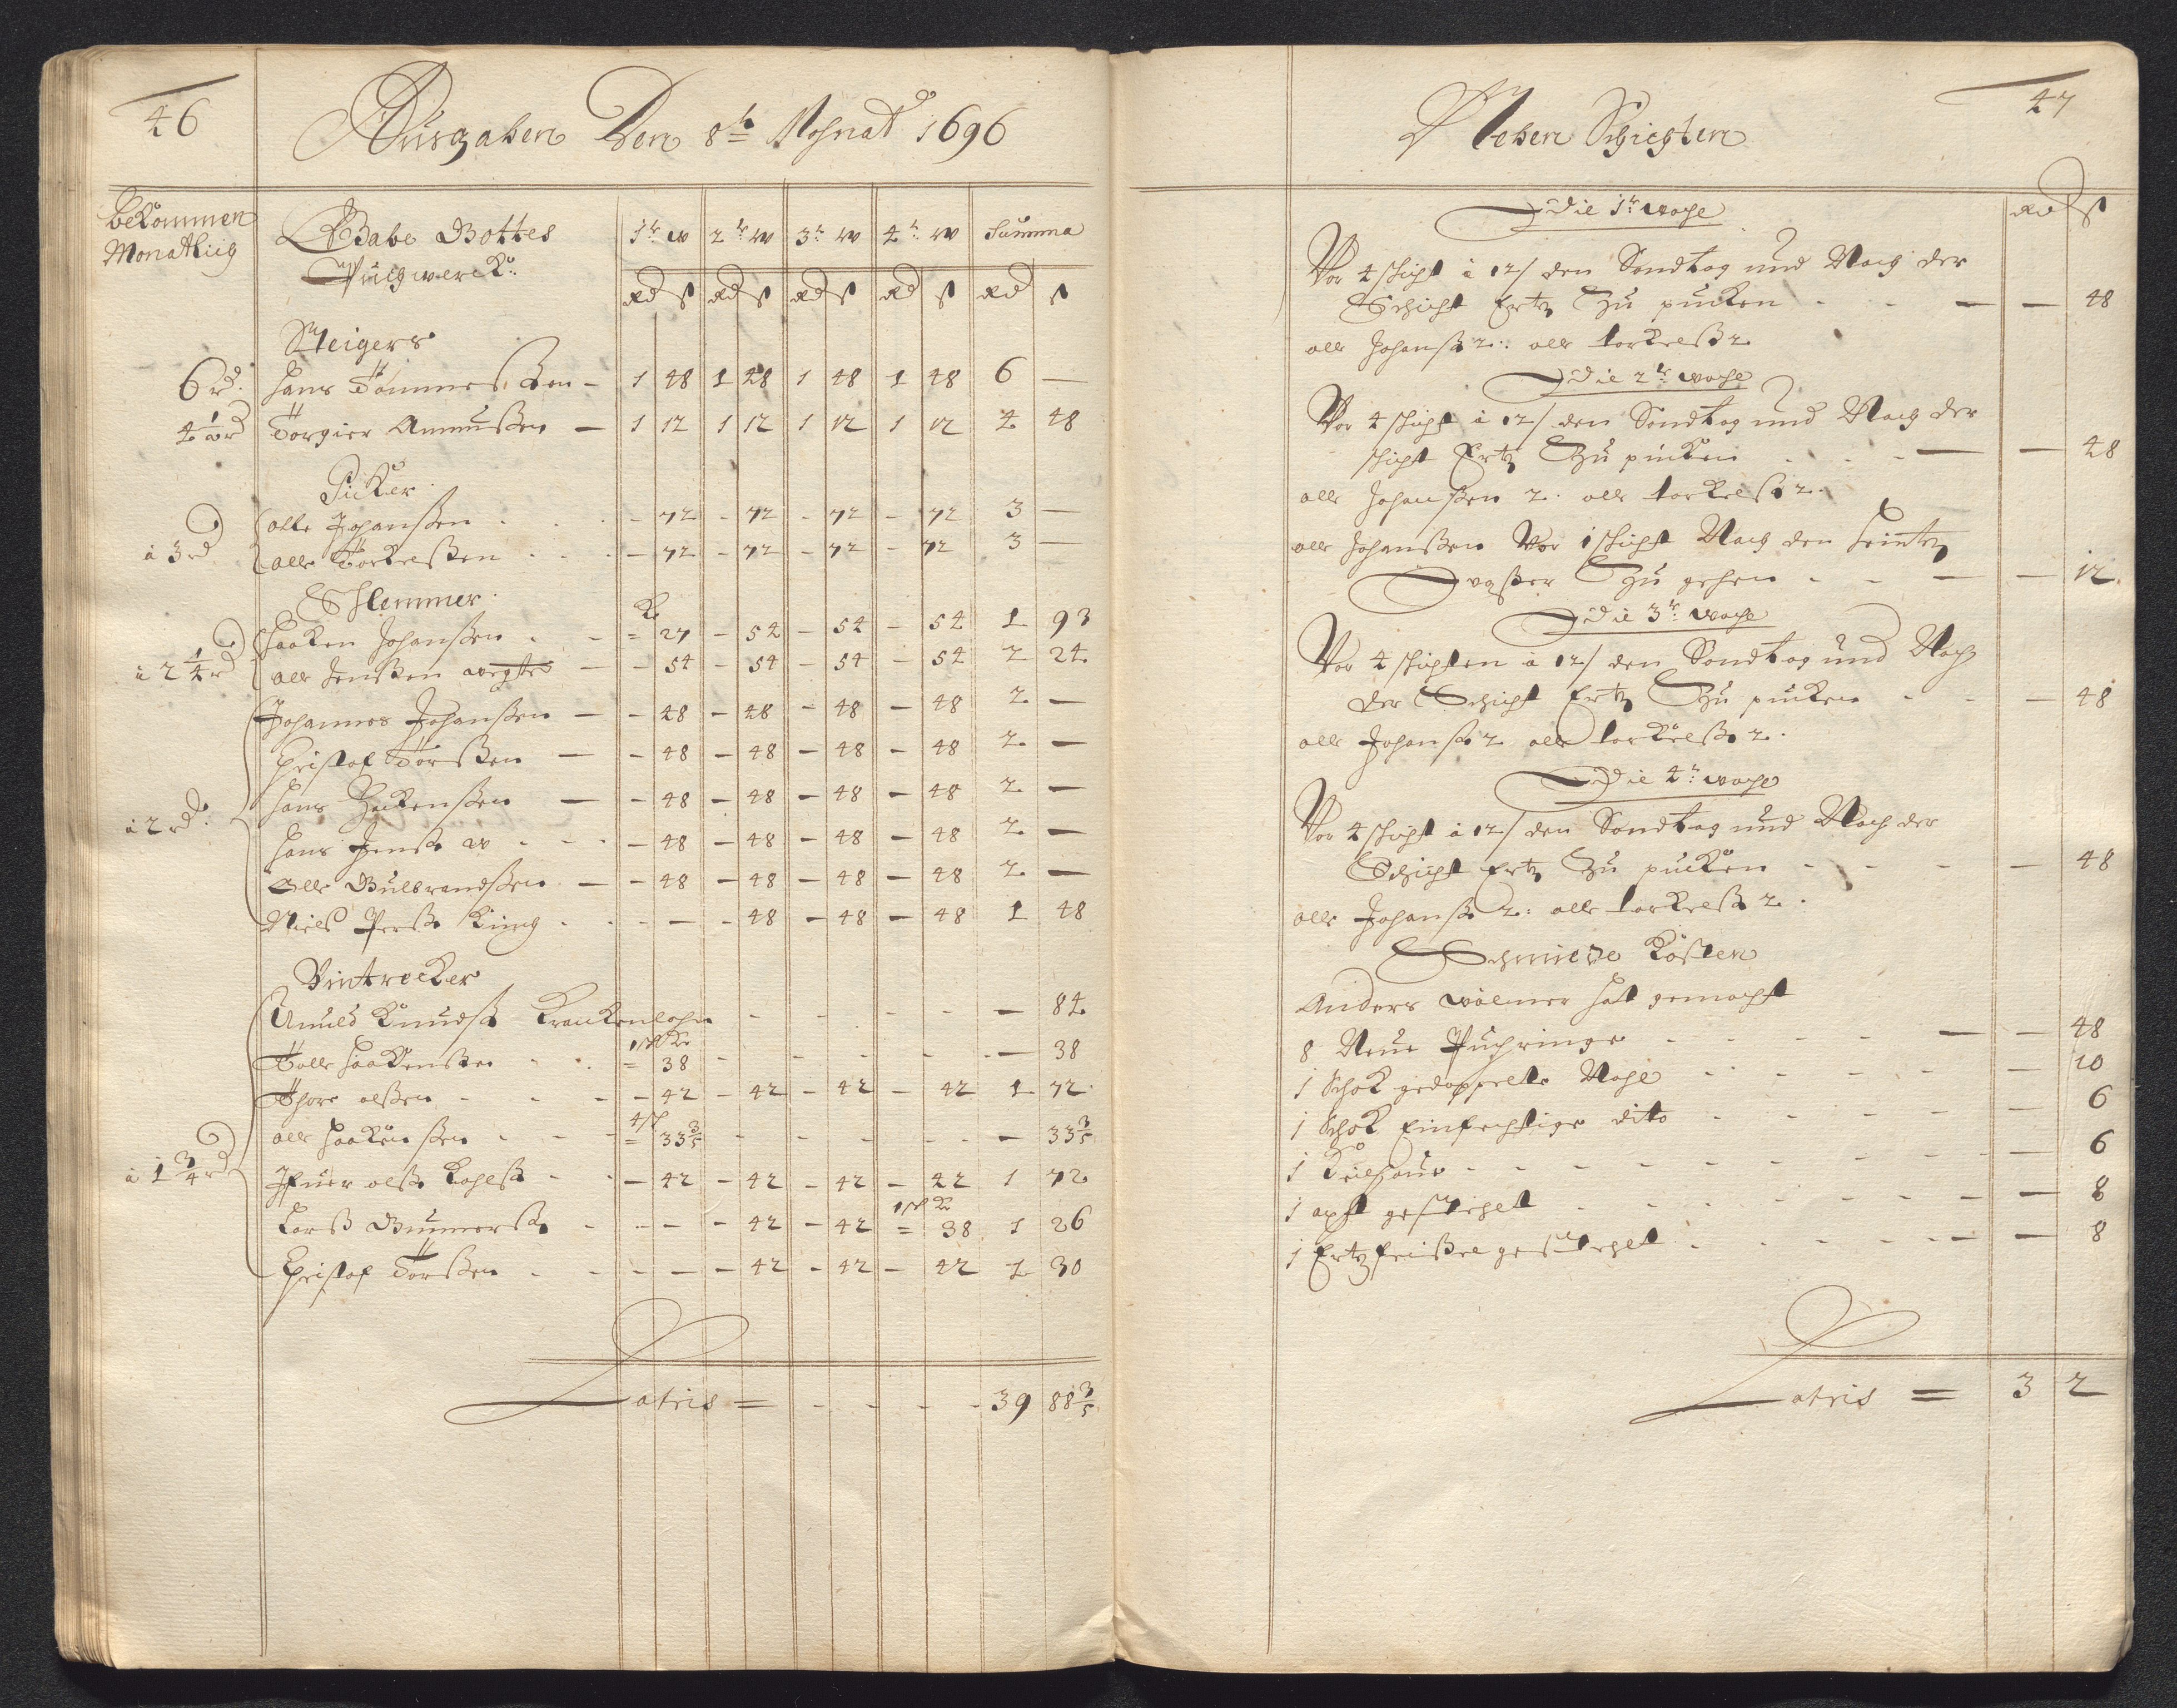 46
Ausgaben Den 8te Mohnat 1696
Bekommen
Monatlich
Gabe Gottes
Puchwerck
1te W 2te W 3te W 4te W Summa
Rd ß Rd ß Rd ß Rd ß Rd ß
Steigers
6 rd. Hans — 1 48 1 48 1 48 1 48 6 —
4 1/2 rd Torgier Amußen — 1 12 1 12 1 12 1 12 4 48
Pucker
à 3 rd olle Johanßen - 72 - 72 - 72 - 72 3 —
olle Torkelßen - 72 - 72 - 72 - 72 3 —
Schlemmer
Haaken Johanßen = 27 - 54 - 54 - 54 1 93
à 2 1/4 rd olle Jenßen — - 54 - 54 - 54 - 54 2 24
Johannes Johanßen — - 48 - 48 - 48 - 48 2 —
Christof Torßen — - 48 - 48 - 48 - 48 2 —
Hans — - 48 - 48 - 48 - 48 2 —
à 2 rd. Hans Jenß - 48 - 48 - 48 - 48 2 —
Olle Gulbrandßen — - 48 - 48 - 48 - 48 2 —
Niels Perß King - - - 48 - 48 - 48 1 48
Knudß Kranckenlohn - - - - — 84
Tolle Haakenßen = 38 - - - - — 38
Thore olßen - 42 - 42 - 42 - 42 1 72
olle Haakenßen = 33 3/5 - - - - — 33 3/5
à 1 3/4 rd Ifuer olß - 42 - 42 - 42 - 42 1 72
Larß Gunnerß - - - 42 - 42 = 38 1 26
Christof Torßen - - - 42 - 42 - 42 1 30
Latris = - - - - 39 88 3/5
47
Neben Schichten
Rd ß
Die 1te woche
Vor 4 schicht à 12/ den Sondtag und Nach der
Schicht Ertz Zu pucken — — 48
olle Johanß 2: olle torkelß 2
Die 2te woche
Vor 4 schicht à 12/ den Sondtag und Nach der
schicht Ertz Zu pucken — — 48
olle Johanßen 2. olle torkelß 2.
olle Johanßen Vor 1 schicht Nach den
waßer Zu gehen — — 12.
Die 3te woche
Vor 4 schichten à 12/ den Sondtag und Nach
der Schicht Ertz Zu pucken - — 48
olle Johanß 2 olle torkelß 2.
Die 4te woche
Vor 4 schicht à 12/ den Sondtag und Nach der
Schicht Ertz Zu pucken - - — 48
olle Johanß 2: olle torkelß 2.
Schmiede Kosten
Anders wolmer hatt gemacht
8 Neue Puchringe - - — — 48
1 Schok gedoppelte Nagel - - — 20
1 Schok Einfachtige dito - - — 6
1 Keilhaue - - — 6
1 axst gestehelt - - — 8
1 Ertz gestehelt - - — 8
Latris = 3 2